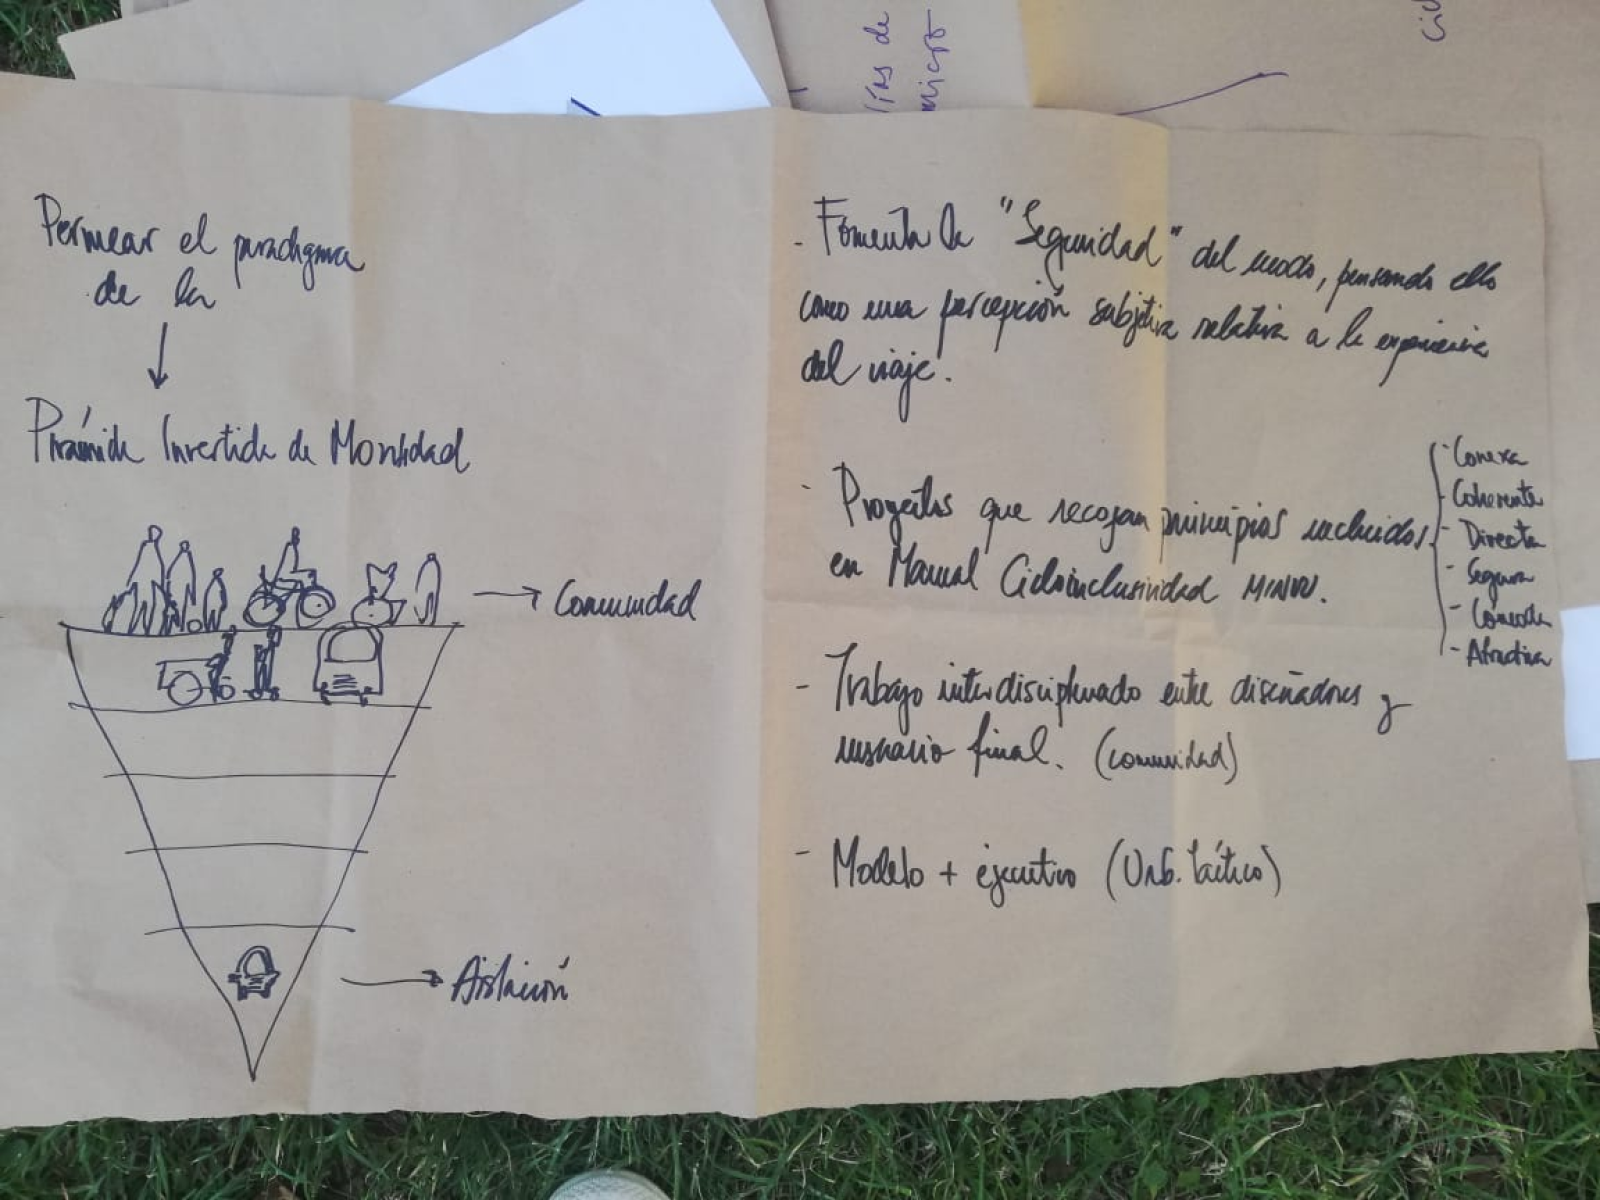 Permear el paradigma
de la
Pirámide Invertida de Movilidad
Comunidad
Aislación
- Fomenta la "Seguridad" del modo, pensando ello
como una percepción subjetiva relativa a la experiencia
del viaje.
- Proyectos que recojan principios incluidos
en Manual Cicloinclusividad MINVU.
- Conexa
- Coherente
- Directa
- Segura
- Cómoda
- Atractiva
- Trabajo interdisciplinado entre diseñadores y
usuario final. (comunidad)
- Modelo + ejecutivo (Urb. táctico)
de
micro